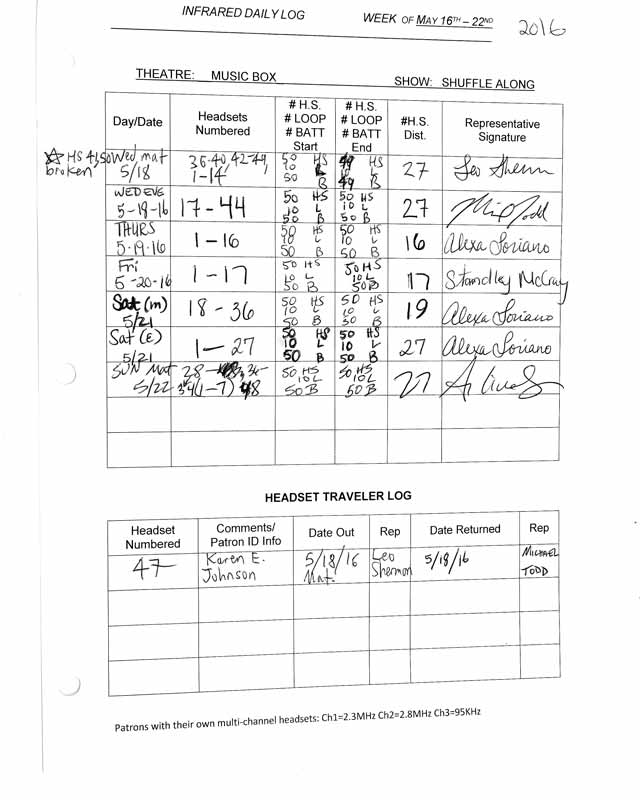 INFRARED DAILY LOG
WEEK OF MAY 16TH – 22ND
2016
THEATRE: MUSIC BOX
SHOW: SHUFFLE ALONG
Day/Date
Headsets Numbered
# H.S. # LOOP # BATT Start
# H.S. # LOOP # BATT End
#H.S. Dist.
Representative Signature
☆ HS 41,50 broken
Wed mat 5/18
36-40, 42-49, 1-14
50 HS 10 L 50 B
49 HS L 49 B
27
Leo Sherman
WED EVE 5-18-16
17-44
50 HS 10 L 50 B
50 HS 10 L 50 B
27
THURS 5-19-16
1-16
50 HS 10 L 50 B
50 HS 10 L 50 B
16
Alexa Soriano
Fri 5-20-16
1-17
50 HS 10 L 50 B
50 HS 10 L 50 B
17
Standley McCray
Sat (m) 5/21
18-36
50 HS 10 L 50 B
50 HS 10 L 50 B
19
Alexa Soriano
Sat (E) 5/21
1-27
50 HS 10 L 50 B
50 HS 10 L 50 B
27
Alexa Soriano
SUN Mat 5/22
28- (1-7)
50 HS 10 L 50 B
50 HS 10 L 50 B
27
HEADSET TRAVELER LOG
Headset Numbered
Comments/ Patron ID Info
Date Out
Rep
Date Returned
Rep
47
Karen E. Johnson
5/18/16 Mat.
Leo Sherman
5/18/16
MICHAEL TODD
Patrons with their own multi-channel headsets: Ch1=2.3MHz Ch2=2.8MHz Ch3=95KHz